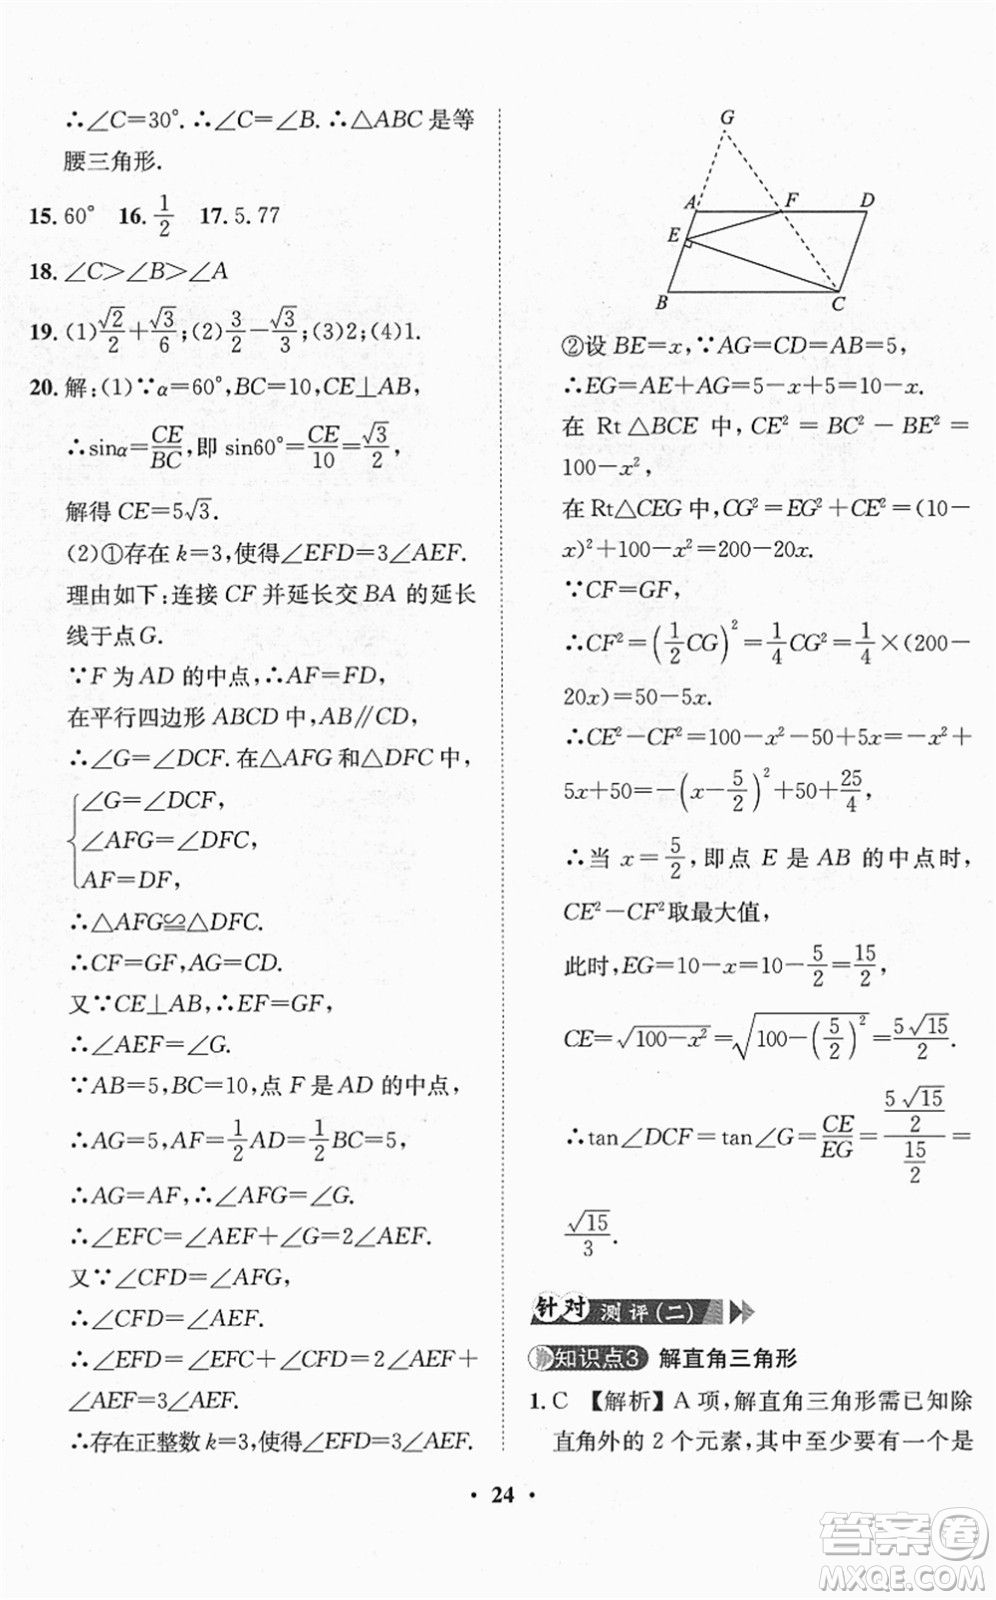 ∴∠C=30°. ∴∠C=∠B. ∴△ABC 是等
腰三角形.
15. 60° 16. 1/2 17. 5.77
18. ∠C>∠B>∠A
19. (1)√2/2+√3/6;(2)3/2-√3/3;(3)2;(4)1.
20. 解:(1)∵α=60°,BC=10,CE⊥AB,
∴sinα=CE/BC,即 sin60°=CE/10=√3/2,
解得 CE=5√3.
(2)①存在 k=3,使得∠EFD=3∠AEF.
理由如下:连接 CF 并延长交 BA 的延长
线于点G.
∵F 为 AD 的中点,∴AF=FD,
在平行四边形 ABCD 中,AB∥CD,
∴∠G=∠DCF. 在△AFG 和△DFC 中,
∠G=∠DCF,
∠AFG=∠DFC,
AF=DF,
∴△AFG≌△DFC.
∴CF=GF,AG=CD.
又∵CE⊥AB,∴EF=GF,
∴∠AEF=∠G.
∵AB=5,BC=10,点 F 是 AD 的中点,
∴AG=5,AF=1/2AD=1/2BC=5,
∴AG=AF,∴∠AFG=∠G.
∴∠EFC=∠AEF+∠G=2∠AEF.
又∵∠CFD=∠AFG,
∴∠CFD=∠AEF.
∴∠EFD=∠EFC+∠CFD=2∠AEF+
∠AEF=3∠AEF.
∴存在正整数 k=3,使得∠EFD=3∠AEF.
G
A F D
E
B C
②设 BE=x,∵AG=CD=AB=5,
∴EG=AE+AG=5-x+5=10-x.
在 Rt △BCE 中, CE² = BC² - BE² =
100-x²,
在 Rt△CEG 中,CG²=EG²+CE²=(10-
x)²+100-x²=200-20x.
∵CF=GF,
∴CF²=(1/2CG)²=1/4CG²=1/4×(200-
20x)=50-5x.
∴CE²-CF²=100-x²-50+5x=-x²+
5x+50=-(x-5/2)²+50+25/4,
∴当 x=5/2,即点 E 是 AB 的中点时,
CE²-CF²取最大值,
此时,EG=10-x=10-5/2=15/2,
CE=√(100-x²)=√(100-(5/2)²)=5√15/2.
∴tan∠DCF=tan∠G=CE/EG=(5√15/2)/(15/2)=
√15/3.
针对 测评(二)
知识点3 解直角三角形
1. C 【解析】A 项,解直角三角形需已知除
直角外的 2 个元素,其中至少要有一个是
· 24 ·
答案卷
MXQE.COM